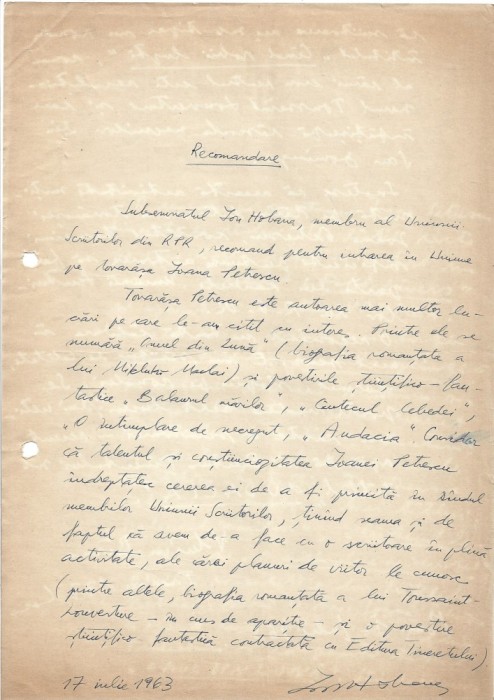 Recomandare
Subsemnatul Ion Hobana, membru al Uniunii
Scriitorilor din RPR, recomand pentru intrarea în Uniune
pe tovarășa Ioana Petrescu.
Tovarășa Petrescu este autoarea mai multor lu-
crări pe care le-am citit cu interes. Printre ele se
numără „Omul din Lună” (biografia romanțată a
lui Mikluho Maclai) și povestirile științifico-fan-
tastice „Balaurul mărilor”, „Cîntecul lebedei”,
„O întîmplare de necrezut”, „Audacia”. Consider
că talentul și conștiinciozitatea Ioanei Petrescu
îndreptățesc cererea ei de a fi primită în rîndul
membrilor Uniunii Scriitorilor, ținînd seama și de
faptul că avem de-a face cu o scriitoare în plină
activitate, ale cărei planuri de viitor le cunosc
(printre altele, biografia romanțată a lui Toussaint-
Louverture – în curs de apariție – și o povestire
științifico fantastică contractată cu Editura Tineretului)
17 iulie 1963
Ion Hobana